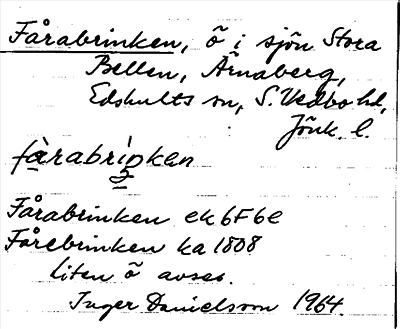 Fårabrinken, ö i sjön Stora
Bellen, Årnaberg,
Edshults sn, S. Vedbo hd,
Jönk. l.
fàrabriŋkan
Fårabrinken ek 6F6e
Fårebrinken ka 1808
Liten ö avses.
Inger Danielsson 1964.